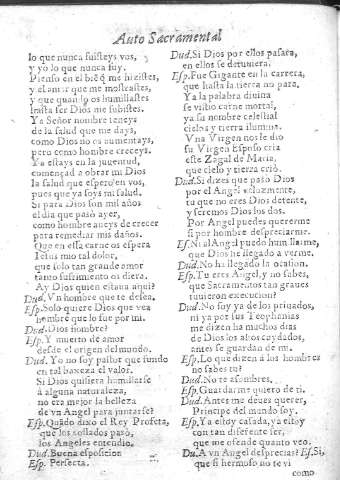 Auto Sacramental
lo que nunca fuisteys vos,
y yo lo que nunca fuy.
Pienso en el biē q̄ me hizistes,
y el amor que me mostrastes,
y que quando os humillastes
hasta ser Dios me subistes.
Ya Señor hombre teneys
de la salud que me days,
como Dios no os aumentays,
pero como hombre creceys.
Ya estays en la juuentud,
començad a obrar mi Dios
la salud que espero en vos,
pues que ya soys mi salud.
Si para Dios son mil años
el dia que passò ayer,
como hombre aueys de crecer
para remediar mis daños.
Que en essa carne os espera
mio tal dolor,
que solo tan grande amor
tanto sufrimiento os diera.
Ay Dios quien estaua aqui?
Dud. Vn hombre que te dessea.
Esp. Solo quiere Dios que vea
hombre que lo fue por mi.
Dud. Dios hombre?
Esp. Y muerto de amor
desde el origen del mundo.
Dud. Yo no soy pastor que fundo
en tal baxeza el valor.
Si Dios quisiera humillarse
à alguna naturaleza,
no era mejor la belleza
de vn Angel para juntarse?
Esp. Quādo dixo el Rey Profeta,
que los collados passò,
los Angeles entendio.
Dud. Buena esposicion
Esp. Perfecta.
Dud. Si Dios por ellos passara,
en ellos se detuuiera.
Esp. Fue Gigante en la carrera,
que hasta la tierra no para.
Ya la palabra diuina
se vistio carne mortal,
ya su nombre celestial
cielos y tierra ilumina.
Vna Virgen nos le dio
su Virgen Esposo cria
este Zagal de Maria,
que cielo y tierra criò.
Dud. Si dizes que passò Dios
por el Angel velozmente,
tu que no eres Dios detente,
y seremos Dios los dos.
Por Angel puedes quererme
si por hombre despreciarme.
Es. Ni al Angel puedo humillarme,
que Dios he llegado a verme.
Dud. No ha llegado la ocasion.
Esp. Tu eres Angel, y no sabes,
que Sacramentos tan graues
tuuieron execucion?
Dud. No soy ya de los priuados,
ni ya por sus Teophanias
me dizen ha muchos dias
de Dios los altos cuydados,
antes se guardan de mi.
Esp. Lo que dizen à los hombres
no sabes tu?
Dud. No te assombres.
Esp. Guardarme quiero de ti.
Dud. Antes me deues querer,
Principe del mundo soy.
Esp. Ya estoy casada, ya estoy
con tan diferente ser,
que me ofende quanto veo.
Du. A vn Angel desprecias? Es. Si,
que si hermoso no te vi
como